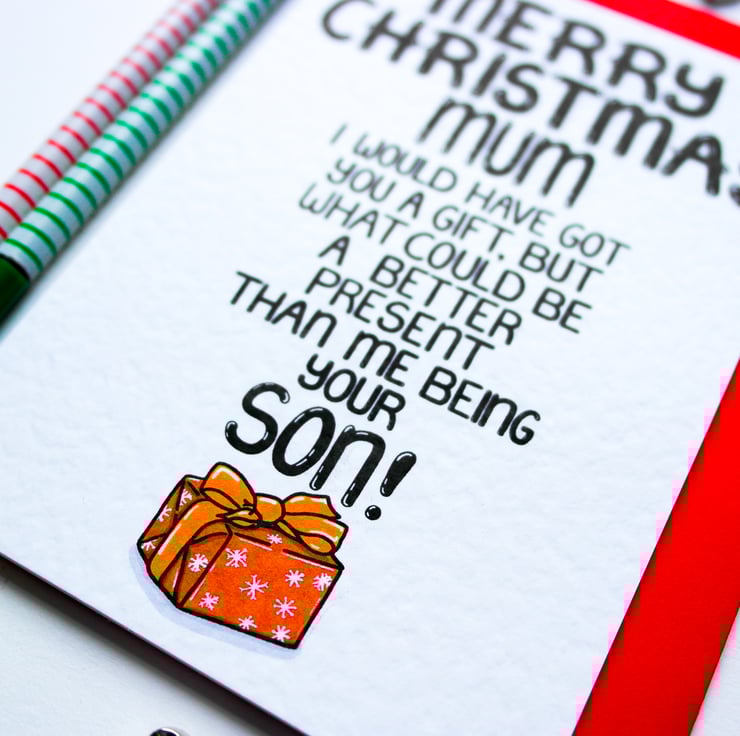 MERRY
CHRISTMAS
MUM
I WOULD HAVE GOT
YOU A GIFT, BUT
WHAT COULD BE
A BETTER
PRESENT
THAN ME BEING
YOUR
SON!